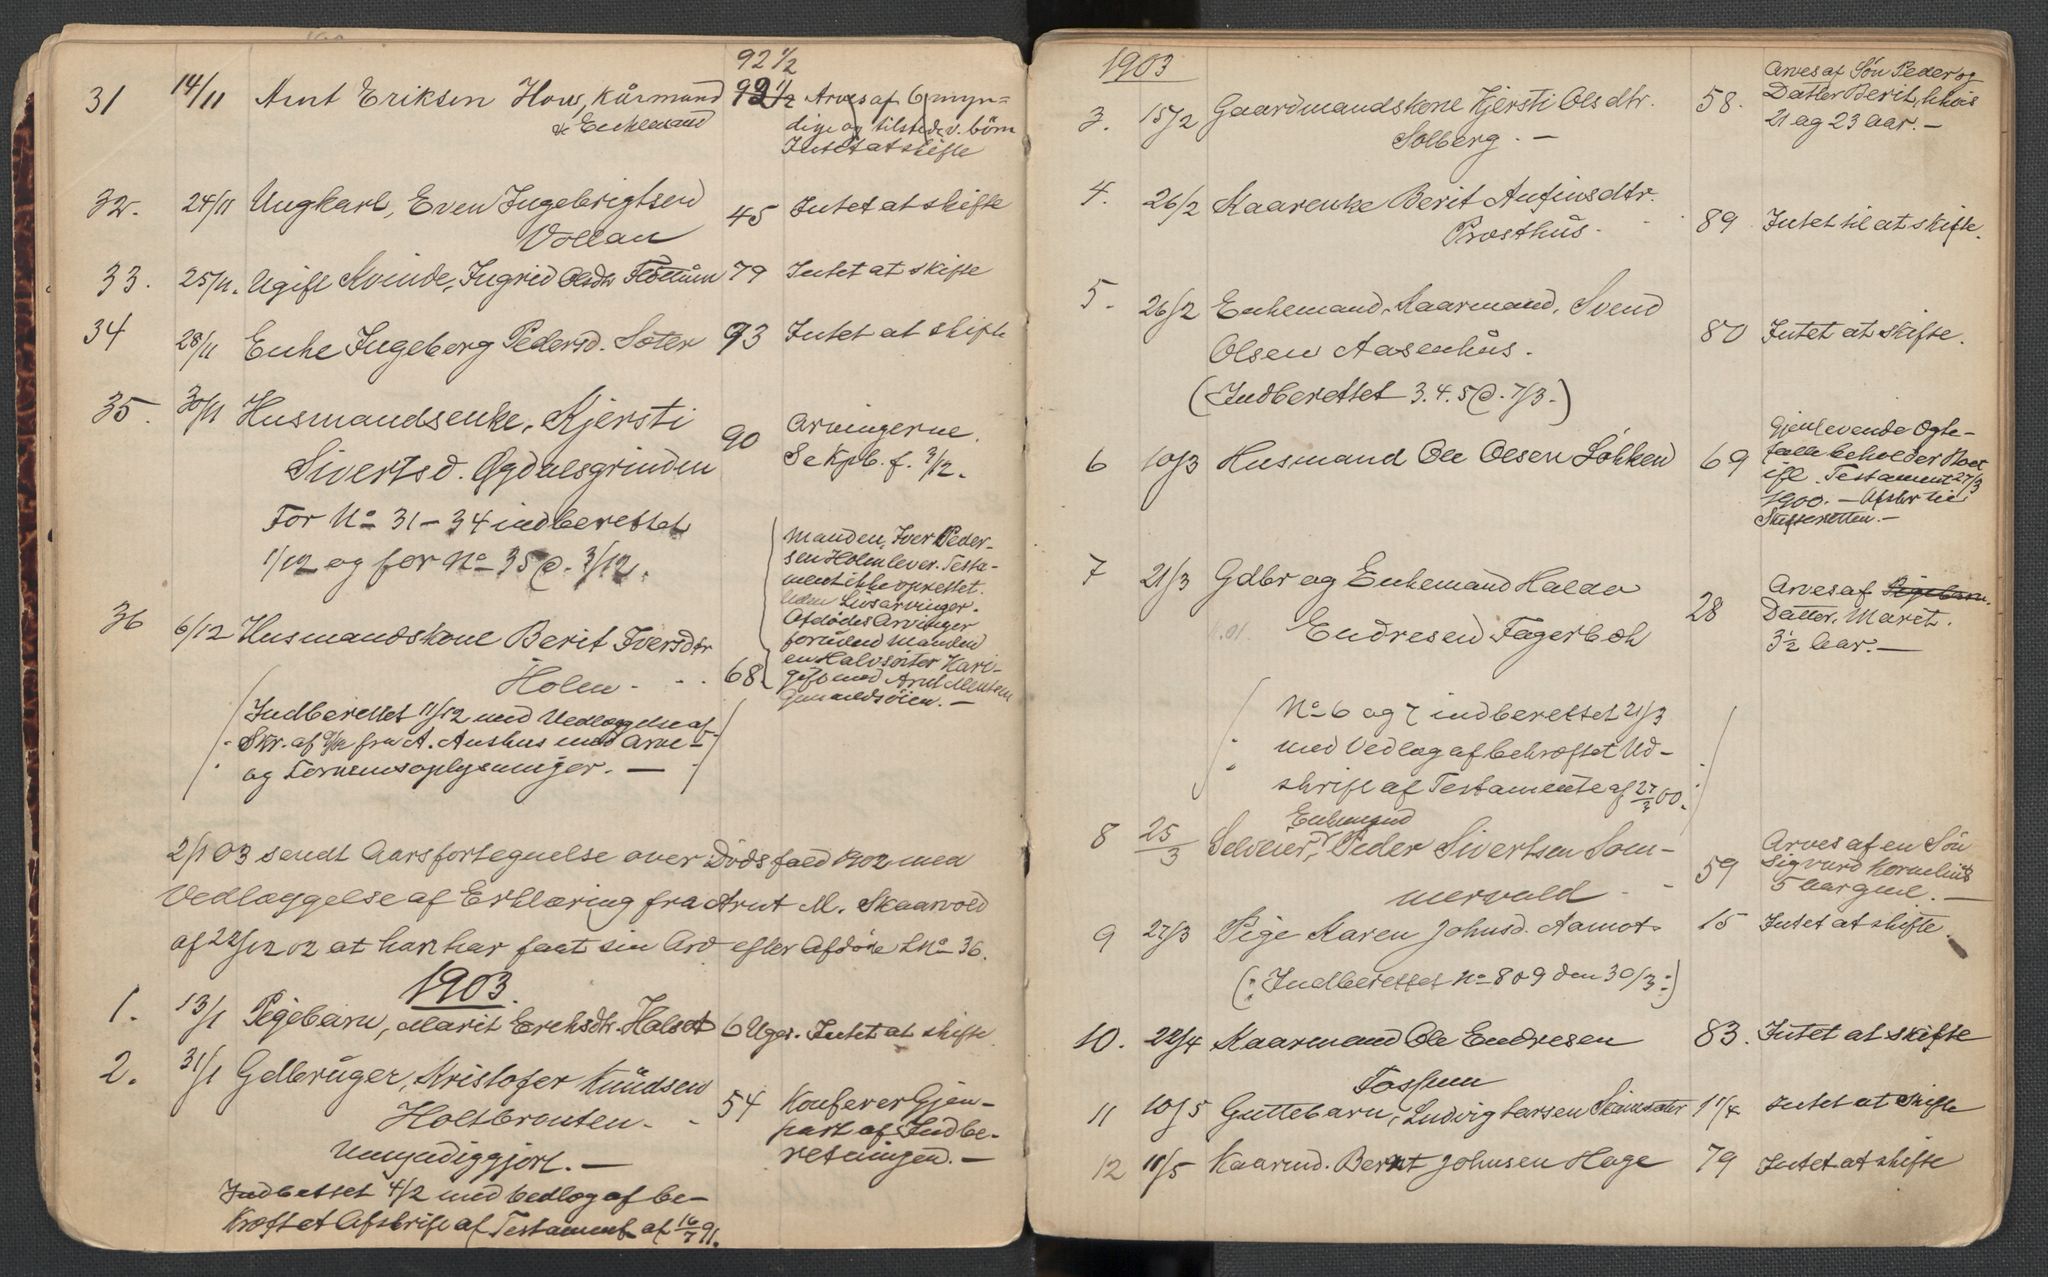 92 ½
31 14/11 Arnt Eriksen How, Kårmand 92½ Arves af 6 myn=
& Enkemand dige og tilstedev. börn
Intet at skifte
32. 24/11 Ungkarl, Even Ingebrigtsen 45 Intet at skifte
Vollan
33. 25/11. Ugift Kvinde, Ingrid Olsdtr Flottum 79 Intet at skifte
34 28/11 Enke Ingeborg Pedersd. Soter 93 Intet at skifte
35. 30/11 Husmandsenke, Kjersti
Sivertsd. Ogdalsgrinden 90 Arvingerne.
Se Kpb. f. 3/12.
For No 31-34 indberettet
1/12 og for No 35 d. 3/12.
36 6/12 Husmandskone Berit Iversdtr
Holen - 68
Manden, Iver Peder-
sen Holen lever. Testa-
ment ikke oprettet.
Uden Livsarvinger.
Afdödes Arvinger
foruden Manden
en Halvsöster Kari
gift med Arnt
(Indberettet 11/12 med Vedlæggelse af
Skr. af fra A. Aushus med Arve-
og Formuesoplysninger. —)
2/1 03 sendt Aarsfortegnelse over Dödsfald 1902 med
Vedlæggelse af Erklæring fra Arnt M. Skaarvold
af 22/12 02 at han har faat sin Arv efter Afdöde LNo 36.
1903.
1. 13/1 Pigebarn, Marit Eriksdtr. Halset 6 Uger. Intet at skifte
2. 31/1 Gdbruger, Kristofer Knudsen
Holtbrouten. - 54 Konferer Gjen-
part af Indbe-
retningen. —
Umyndiggjort. —
Indbettet 4/2 med Vedlæg af be-
kræftet Afskrift af Testament af 16/7 91.
1903
3. 15/2 Gaardmandskone Kjersti Olsdtr.
Solberg. — 58.
Arves af Sön Peder og
Datter Berit, hhvis
21 og 23 aar. —
4. 26/2 Kaarenke Berit Anfinsdtr.
Prosthus. 89 Intet til at skifte.
5. 26/2 Enkemand, Kaarmand, Svend
Olsen Aasenhus. 80 Intet at skifte.
(Indberettet 3. 4. 5 d. 7/3.)
6 10/3 Husmand Ole Olsen Løkken 69
Gjenlevende Ægte-
fælle beholder Boet
ifl. Testament 27/3
1900. — Afskr til
Skifteretten. —
7 21/3 Gdbr og Enkemand Haldo
Endresen Fagerbæk 28
Arves af Pigebarn.
Datter, Marit.
3½ Aar. —
(: No 6 og 7 indberettet 21/3
med Vedlæg af bekræftet Ud-
skrift af Testamente af 27/3 00. :)
Enkemand
8 25/3 Selveier, Peder Sivertsen Som-
mervold - 59
Arves af en Sön
Sigvard Kornelius
5 Aar gml. —
9 27/3 Pige Karen Johnsd. Aamot. 15 Intet at skifte.
(: Indberettet No 8 o 9 den 30/3 :)
10. 22/4 Kaarmand Ole Endresen 83. Intet at skifte
Foshum
11 10/5 Guttebarn, Ludvig Larsen 1¼ Intet at skifte
12 11/5 Kaarmd. Bernt Johnsen Hage 79 Intet at skifte